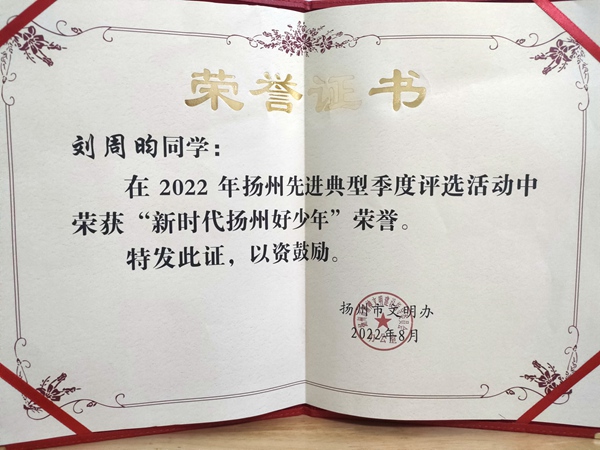 荣誉证书
刘周昀同学：
在 2022 年扬州先进典型季度评选活动中
荣获“新时代扬州好少年”荣誉。
特发此证，以资鼓励。
扬州市文明办
2022年8月